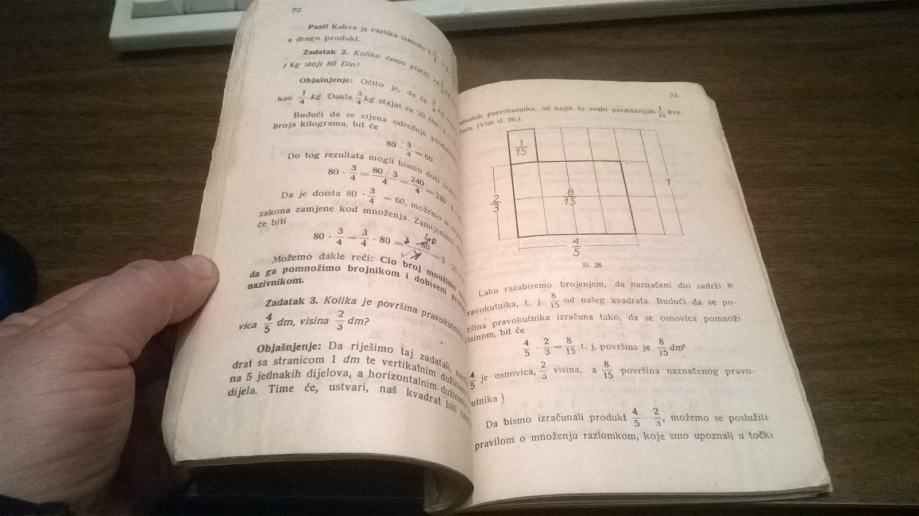 72
Pazi! Kakva je razlika između
a drugo produkt.
Zadatak 2. Koliko ćemo platiti za
1 kg stoji 80 Din?
Objašnjenje: Očito je, da će
kao 1/4 kg. Dakle 3/4 kg stajat će 20 Din
Budući da se cijena određuje
broja kilograma, bit će
80 · 3/4 = 60
Do tog rezultata mogli bismo doći
80 · 3/4 = 80 · 3/4 = 240/4 = 240 : 4
Da je doista 80 · 3/4 = 60, možemo se
zakona zamjene kod množenja.
će biti
80 · 3/4 = 3/4 · 80 =
Možemo dakle reći: Cio broj
da ga pomnožimo brojnikom i dobiveni
nazivnikom.
Zadatak 3. Kolika je površina
vica 4/5 dm, visina 2/3 dm?
Objašnjenje: Da riješimo taj zadatak,
drat sa stranicom 1 dm te vertikalnim
na 5 jednakih dijelova, a horizontalnim
dijela. Time će, ustvari, naš kvadrat biti
73
pravokutnika, od kojih će svaki predstavljati 1/15 kva-
(Vidi sl. 26.)
1/15
2/3
8/15
1
4/5
Sl. 26
Lako razabiremo brojenjem, da naznačeni dio sadrži 8
t. j. 8/15 od našeg kvadrata. Budući da se po-
pravokutnika izračuna tako, da se osnovica pomnoži
bit će
4/5 · 2/3 = 8/15 t. j. površina je 8/15 dm²
4/5 je osnovica, 2/3 visina, a 8/15 površina naznačenog pravo-
utnika)
Da bismo izračunali produkt 4/5 · 2/3, možemo se poslužiti
pravilom o množenju razlomkom, koje smo upoznali u točki